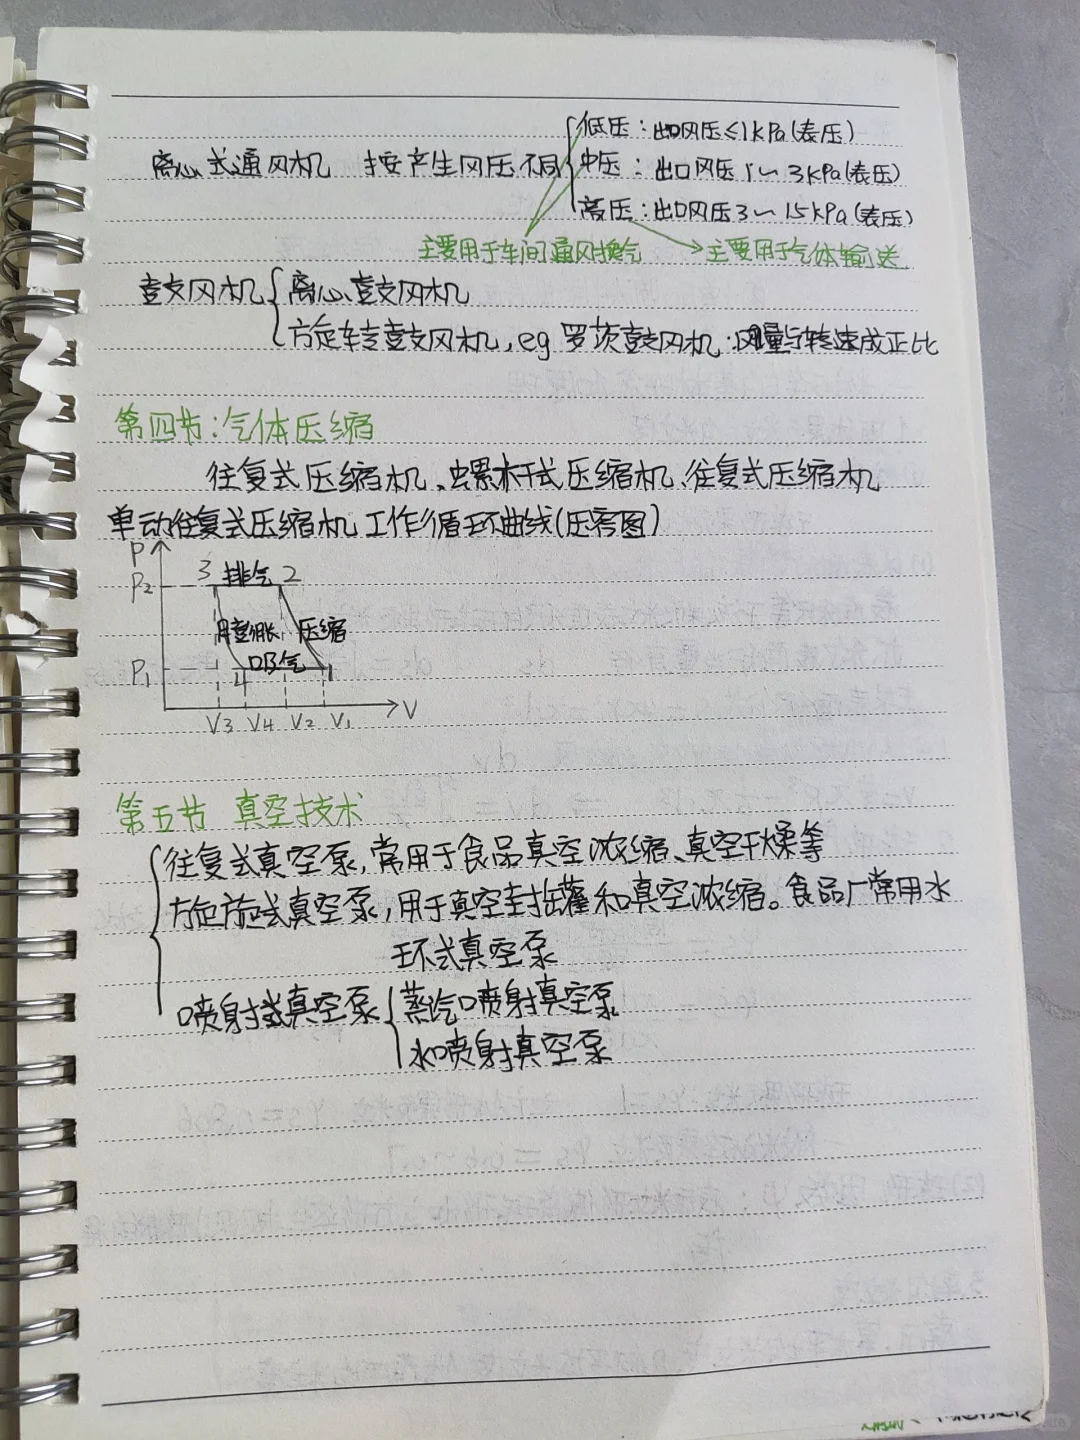 低压：出口风压≤1kPa(表压)
离心式通风机 按产生风压不同
中压：出口风压1～3kPa(表压)
高压：出口风压3～15kPa(表压)
主要用于车间通风换气 主要用于气体输送
鼓风机 离心鼓风机
旋转鼓风机，eg 罗茨鼓风机：风量与转速成正比
第四节：气体压缩
往复式压缩机、螺杆式压缩机、往复式压缩机
单动往复式压缩机工作循环曲线(压容图)
P
P2 3 排气 2
膨胀 压缩
P1 4 吸气 1
V3 V4 V2 V1 V
第五节 真空技术
往复式真空泵，常用于食品真空浓缩、真空干燥等
旋转式真空泵，用于真空封罐和真空浓缩。食品厂常用水
环式真空泵
喷射式真空泵 蒸汽喷射真空泵
水喷射真空泵